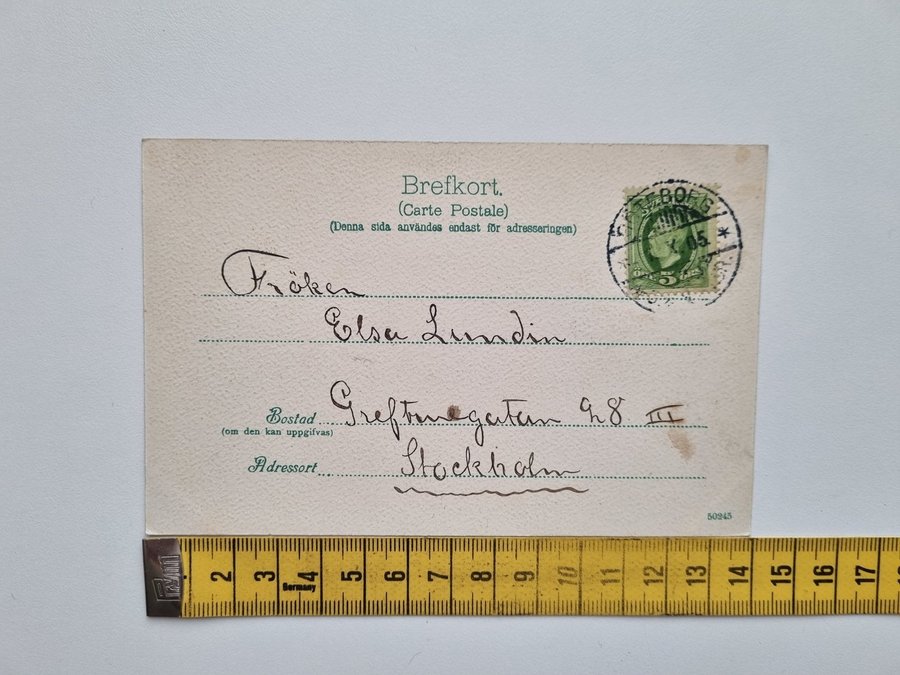 Brefkort.
(Carte Postale)
(Denna sida användes endast för adresseringen)
GÖTEBORG
05.
5
Fröken
Elsa Lundin
Bostad Greftnregatan 28 III
(om den kan uppgifvas)
Adressort Stockholm
50245
2 3 4 5 6 7 8 9 10 11 12 13 14 15 16 17
Germany